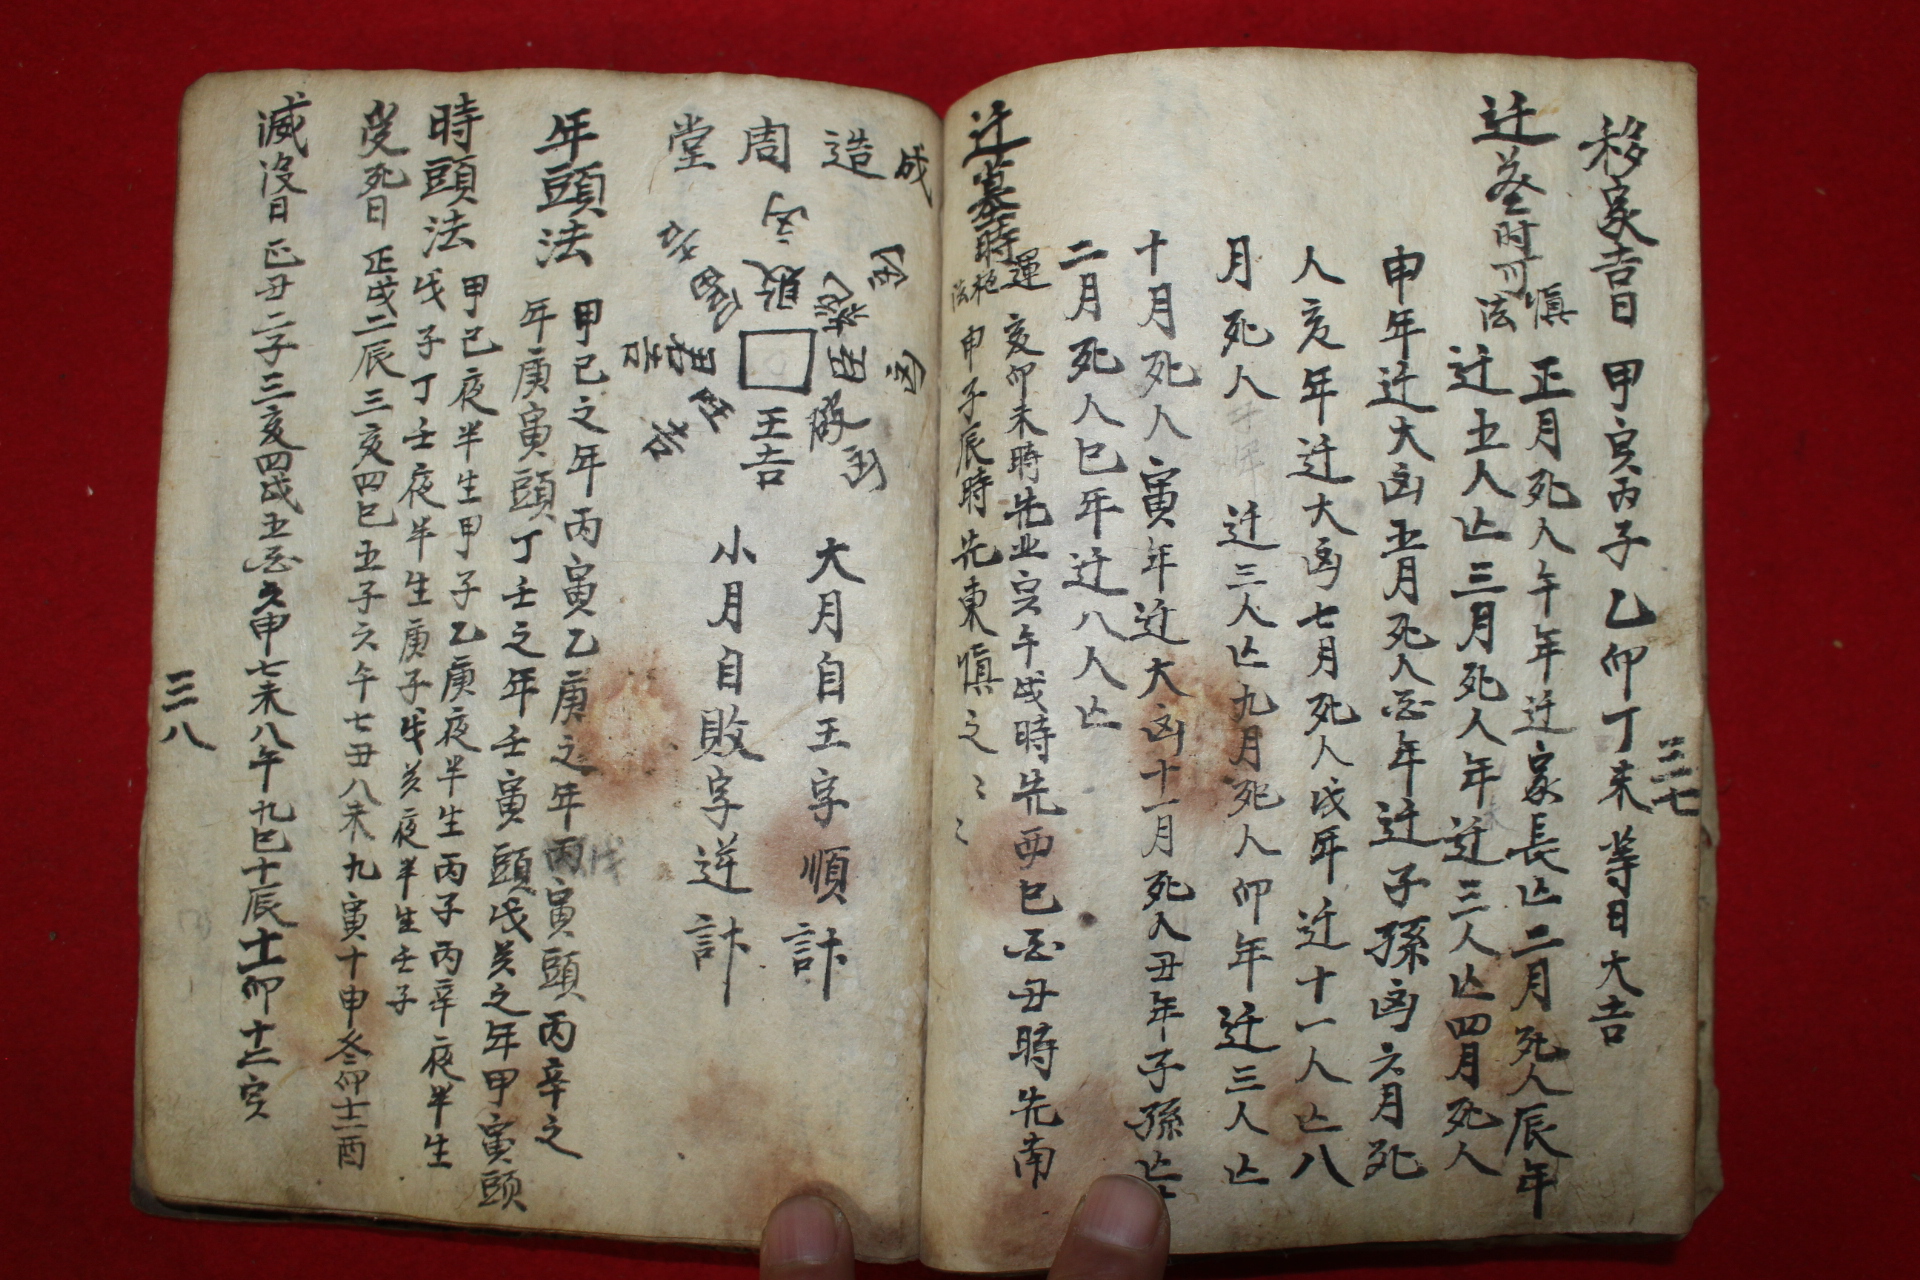 移家吉日 甲寅丙子乙卯丁未等日大吉
三七
迁墓时可慎法 正月死人午年迁家長亡二月死人辰年
迁五人亡三月死人年迁三人亡四月死人
申年迁大凶五月死人年迁子孫凶六月死
人亥年迁大凶七月死人戌年迁十一人亡八
月死人 迁三人亡九月死人卯年迁三人亡
十月死人寅年迁大凶十一月死人丑年子孫亡
二月死人巳年迁八人亡
迁墓時運柩法 亥卯未時先北寅午戌時先西巳酉丑時先南
申子辰時先東慎之〻〻
成造周堂
敗
王吉
大月自王字順計
小月自敗字逆計
年頭法 甲己之年丙寅乙庚之年戊寅頭丙辛之
年庚寅頭丁壬之年壬寅頭戊癸之年甲寅頭
時頭法 甲己夜半生甲子乙庚夜半生丙子丙辛夜半生
戊子丁壬夜半生庚子戊癸夜半生壬子
受死日 正戌二辰三亥四巳五子六午七丑八未九寅十申冬卯十二酉
滅没日 正丑二子三亥四戌五酉六申七未八午九巳十辰十一卯十二寅
三八